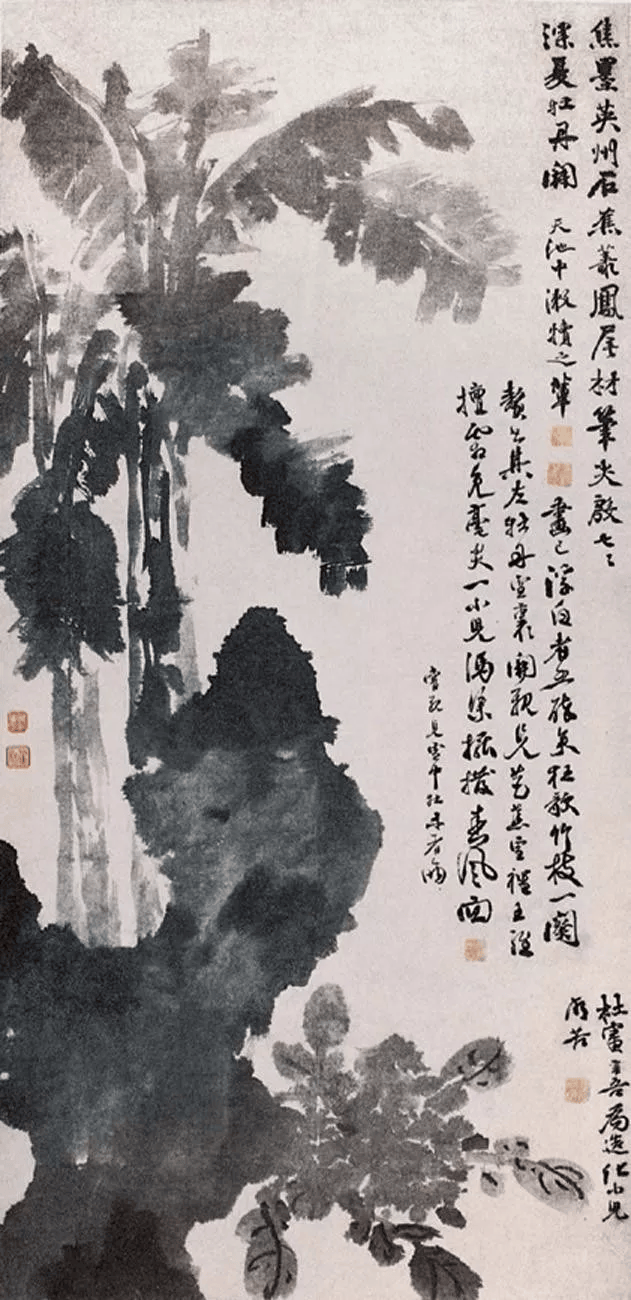 焦墨英州石蕉叢鳳尾材筆尖殷七七
深夏牡丹開 天池中漱犢之輩
畫已浮白者五醉矣狂歌竹枝一闋
贅書其左牡丹雪裏開親見芭蕉雪裡王維
擅霜兔毫尖一小兒馮渠擺撥春風面
嘗親見雪中牡丹者兩
杜審言吾為造化小兒
所苦